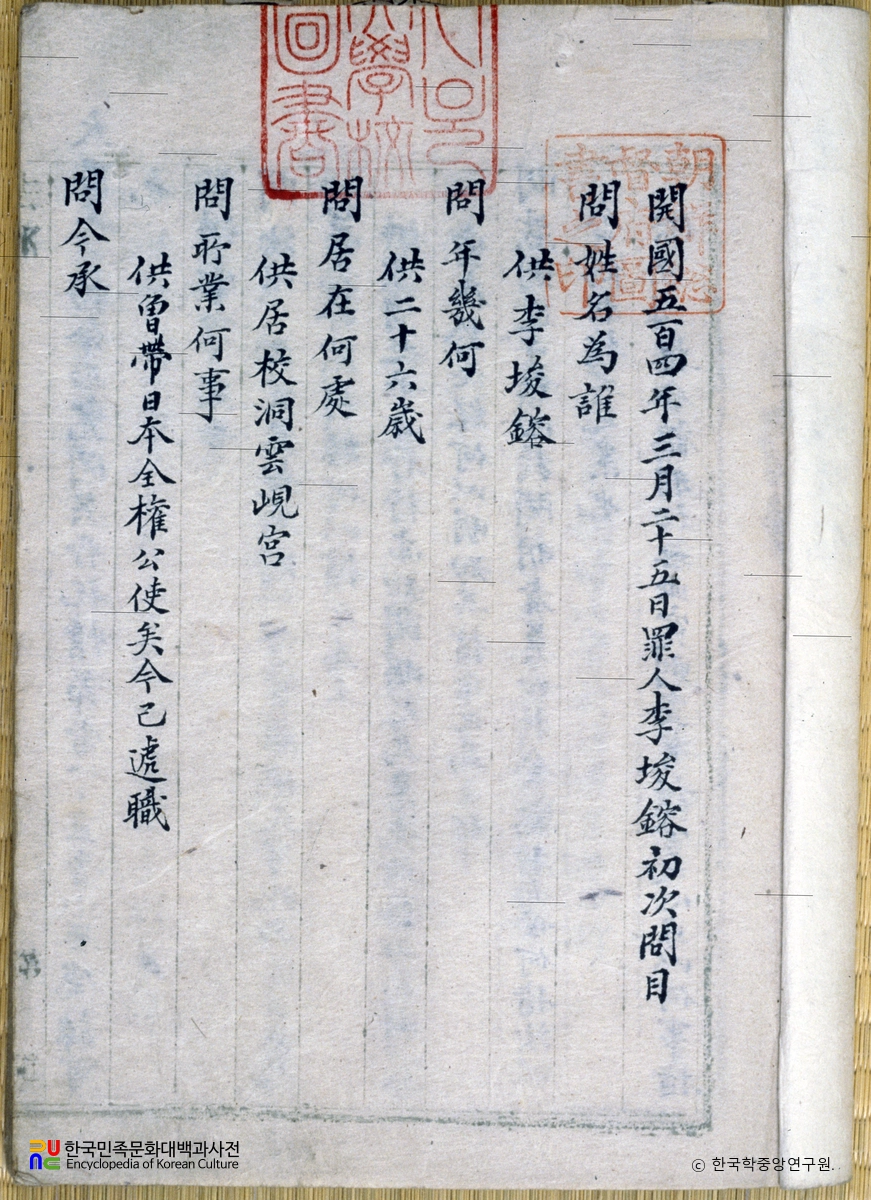 開國五百四年三月二十五日罪人李埈鎔初次問目
問姓名為誰
供李埈鎔
問年幾何
供二十六歲
問居在何處
供居校洞雲峴宮
問所業何事
供曾帶日本全權公使矣今已遞職
問今承
朝鮮總
督府圖
書之印
大學校
圖書
한국민족문화대백과사전
Encyclopedia of Korean Culture
© 한국학중앙연구원.